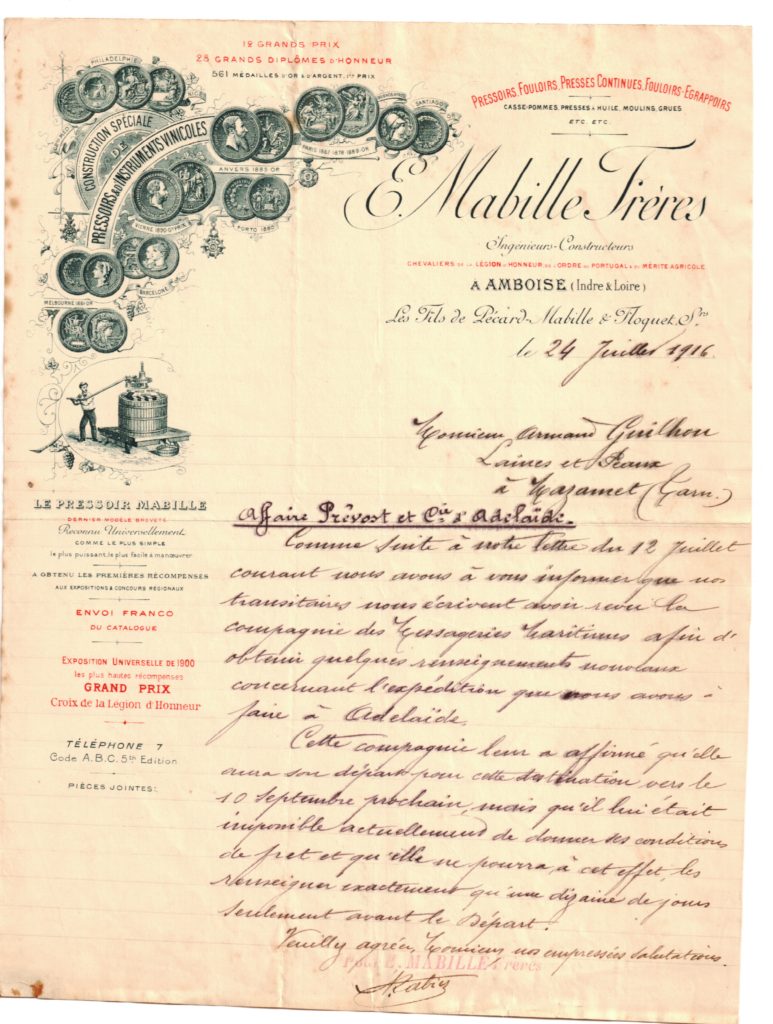 12 GRANDS PRIX
28 GRANDS DIPLÔMES D'HONNEUR
561 MÉDAILLES D'OR & D'ARGENT, 1ers PRIX
PHILADELPHIE
SANTIAGO
CONSTRUCTION SPÉCIALE
DE
PRESSOIRS & D'INSTRUMENTS VINICOLES
PARIS 1867-1878-1889-OR
ANVERS 1885-OR
VIENNE 1890-Gd PRIX
PORTO 1880
BARCELONE
MELBOURNE 1881-OR
PRESSOIRS FOULOIRS, PRESSES CONTINUES, FOULOIRS-EGRAPPOIRS
CASSE-POMMES, PRESSES À HUILE, MOULINS, GRUES
ETC. ETC.
E. Mabille Frères
Ingénieurs-Constructeurs
CHEVALIERS DE LA LÉGION D'HONNEUR, DE L'ORDRE DU PORTUGAL & DU MÉRITE AGRICOLE
A AMBOISE (Indre & Loire)
Les Fils de Pécard-Mabille & Floquet, Srs
le 24 Juillet 1916
Monsieur Armand Guilhou
Laines et Peaux
à Mazamet (Tarn.)
LE PRESSOIR MABILLE
DERNIER MODÈLE BREVETÉ
Reconnu Universellement
COMME LE PLUS SIMPLE
le plus puissant, le plus facile à manœuvrer
A OBTENU LES PREMIÈRES RÉCOMPENSES
AUX EXPOSITIONS & CONCOURS RÉGIONAUX
ENVOI FRANCO
DU CATALOGUE
EXPOSITION UNIVERSELLE DE 1900
les plus hautes récompenses
GRAND PRIX
Croix de la Légion d'Honneur
TÉLÉPHONE 7
Code A.B.C. 5th Edition
PIÈCES JOINTES:
Affaire Prévost et Cie d'Adelaïde.
Comme suite à notre lettre du 12 Juillet
courant nous avons à vous informer que nos
transitaires nous écrivent avoir revu la
compagnie des Messageries Maritimes afin d'
obtenir quelques renseignements nouveaux
concernant l'expédition que nous avons à
faire à Adelaïde.
Cette compagnie leur a affirmé qu'elle
aura son départ pour cette destination vers le
10 Septembre prochain, mais qu'il lui était
impossible actuellement de donner ses conditions
de fret et qu'elle ne pourra, à cet effet, les
renseigner exactement qu'une dizaine de jours
seulement avant le Départ.
Veuillez agréer, Monsieur, nos empressées salutations.
Pour E. MABILLE Frères